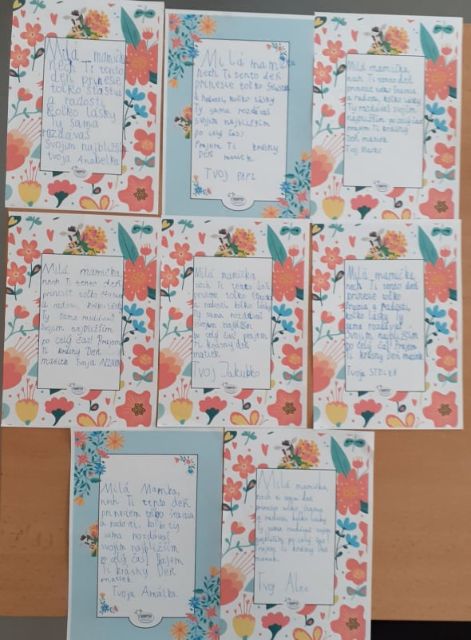 Milá mamička,
nech Ti tento
deň prinesie
toľko šťastia
a radosti,
koľko lásky
Ty sama
rozdávaš
svojim najbližším
tvoja Anabelka
Milá mami
nech Ti tento deň
prinesie toľko šťastia
a radosti, koľko lásky
Ty sama rozdávaš
svojim najbližším
po celý čas!
Prajem Ti krásny
Deň matiek
TVOJ
Milá mamička,
nech Ti tento deň
prinesie toľko šťastia
a radosti, koľko lásky
Ty sama rozdávaš svojim
najbližším po celý čas!
Prajem Ti krásny
Deň matiek
Tvoj
Milá mamička,
nech Ti tento deň
prinesie toľko šťastia
a radosti, koľko lásky
Ty sama rozdávaš
svojim najbližším
po celý čas! Prajem
Ti krásny Deň
matiek Tvoja
Milá mamička,
nech Ti tento deň
prinesie toľko šťastia
a radosti, koľko lásky
Ty sama rozdávaš
svojim najbližším
po celý čas! prajem
Ti krásny Deň
matiek.
Tvoj Jakubko
Milá mamička
nech Ti tento deň
prinesie toľko
šťastia a radosti,
koľko lásky Ty
sama rozdávaš
svojim najbližším
po celý čas! Prajem
Ti krásny Deň matiek
Tvoja
Milá Mamka,
nech Ti tento deň
prinesie toľko šťastia
a radosti, koľko ty
sama rozdávaš
svojim najbližším
po celý čas! Prajem
Ti krásny Deň
matiek
Tvoja Amálka
Milá mamička,
nech ti tento deň
prinesie toľko šťastia
a radosti, koľko lásky
Ty sama rozdávaš svojim
najbližším po celý čas!
Prajem Ti krásny Deň
matiek.
Tvoj Alex